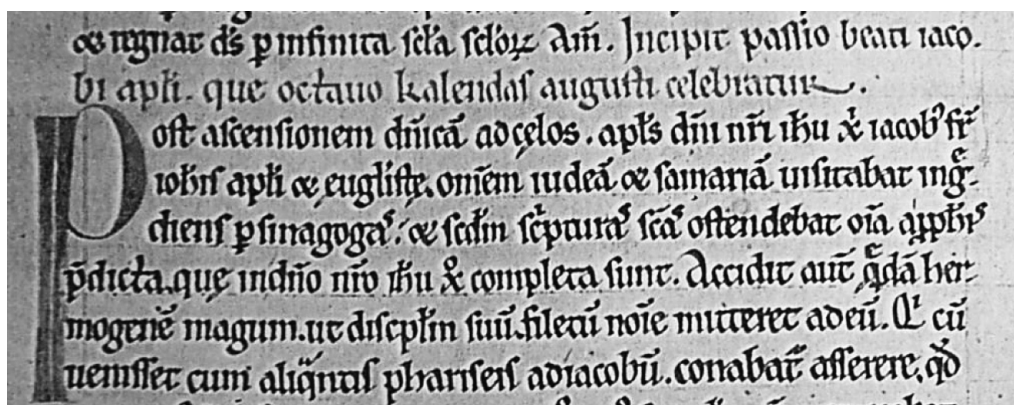 & regnat dſ p infinita ſcła ſcłoꝝ Am̄. Incipit paſſio beati iaco-
bi apłi. que octauo kalendaſ auguſti celebratur.
Poſt aſcenſionem dn̄icā ad cęloſ. apłſ dn̄i nr̄i ih̄u xp̄i iacobꝰ fr̄
ioh̄iſ apłi & euḡliſtę. om̄em iudeā & ſamariā uiſitabat ingͤ-
dienſ ꝑ ſinagogaſ. & ſcd̄m ſcͥpturaſ ſcāſ oſtendebat oīa a ꝓph̄iſ
p̄dicta. quę in dn̄o nr̄o ih̄u xͦ completa ſunt. Accidit aut̄ qͣdā her-
mogenē magum. ut diſcpłm ſuū. filetū noīe mitteret ad eū. Qͥ cū
ueniſſet cum aliqͣntiſ phariſeiſ ad iacobū. conabat̄ aſſerere. qd̄